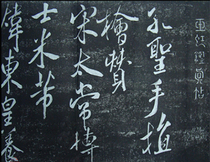 孔聖手植
檜贊
宋太常博
士米芾
煒東皇養